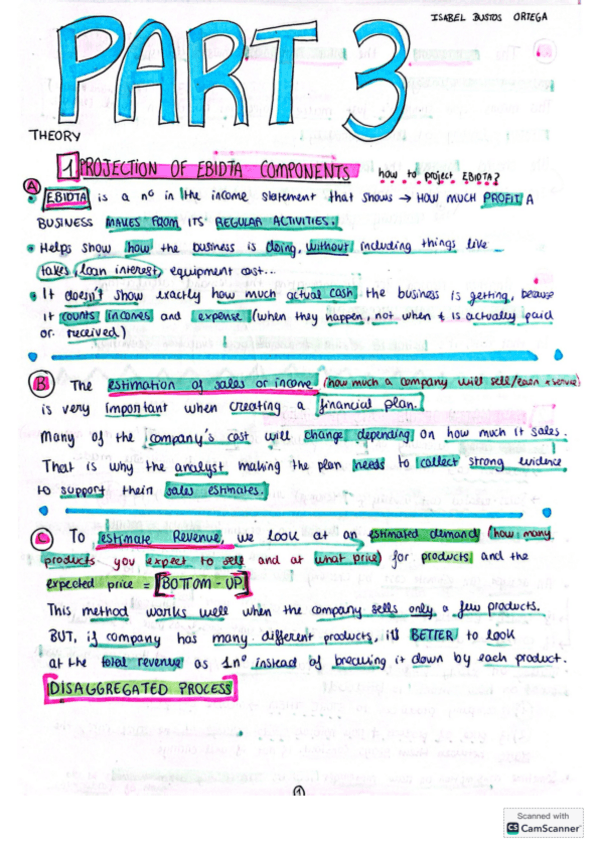 ISABEL BUSTOS ORTEGA
PART 3
THEORY
1 PROJECTION OF EBIDTA COMPONENTS how to project EBIDTA?
A
• EBIDTA is a nº in the income statement that shows → HOW MUCH PROFIT A
BUSINESS MAKES FROM ITS REGULAR ACTIVITIES.
• Helps show how the business is doing, without including things like
taxes, loan interest, equipment cost...
• It doesn't show exactly how much actual cash the business is getting, because
it counts incomes and expense (when they happen, not when it is actually paid
or received)
B The estimation of sales or income (how much a company will sell/earn
is very important when creating a financial plan.
Many of the company's cost will change depending on how much it sales.
That is why the analyst making the plan needs to collect strong evidence
to support their sales estimates.
C To estimate Revenue, we look at an estimated demand (how many
products you expect to sell and at what price) for products and the
expected price = [BOTTOM-UP]
This method works well when the company sells only a few products.
BUT, if company has many different products, it's BETTER to look
at the total revenue as 1nº instead of breaking it down by each product.
DISAGGREGATED PROCESS
1
Scanned with
CS CamScanner